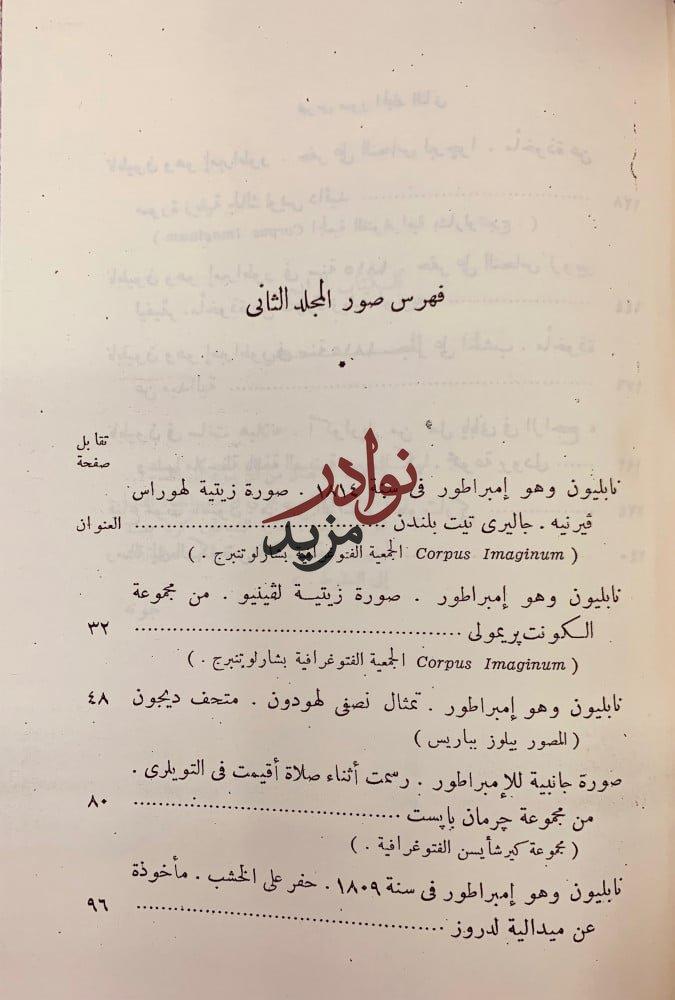 فهرس صور المجلد الثانى
تقابل
صفحة
نابليون وهو إمبراطور فى سنة ١٨١٤ . صورة زيتية لهوراس
ڤيرنيه . جاليرى تيت بلندن ........ العنوان
( Corpus Imaginum الجمعية الفتوغرافية بشارلوتنبرج . )
نابليون وهو إمبراطور . صورة زيتية لڤينيو . من مجموعة
الكونت پريمولى ........ ٣٢
( Corpus Imaginum الجمعية الفتوغرافية بشارلوتنبرج . )
نابليون وهو إمبراطور . تمثال نصفى لهودون . متحف ديجون ٤٨
( المصور بيلوز بباريس )
صورة جانبية للإمبراطور . رسمت أثناء صلاة أقيمت فى التويلرى .
من مجموعة چرمان باپست ........ ٨٠
( مجموعة كيرشأيسن الفتوغرافية . )
نابليون وهو إمبراطور فى سنة ١٨٠٩ . حفر على الخشب . مأخوذة
عن ميدالية لدروز ........ ٩٦
نوادر
مزيد